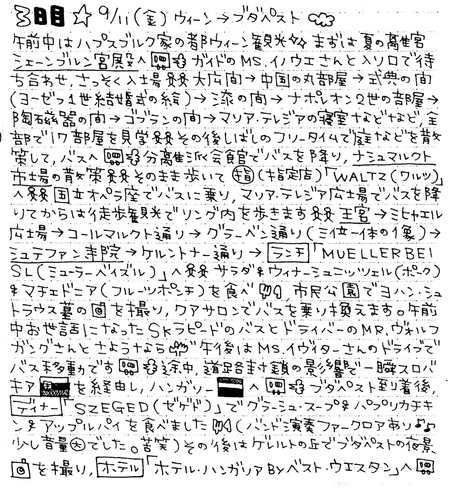 3日目☆9/11(金)ウィーン→ブダペスト
午前中はハプスブルク家の都ウィーン観光☆☆まずは夏の離宮
シェーンブルン宮殿へ ガイドのMS.イノウエさんと入り口で待
ち合わせ、さっそく入場 大広間→中国の丸部屋→式典の間
(ヨーゼフ1世結婚式の絵)→漆の間→ナポレオン2世の部屋→
陶磁器の間→ゴブランの間→マリア・テレジアの寝室などなど、全
部で17部屋を見学 その後しばしのフリータイムで庭などを散
策して、バスへ 分離派会館でバスを降り、ナシュマルクト
市場の散策 そのまま歩いて (指定店)「WALTZ(ワルツ)」
へ 国立オペラ座でバスに乗り、マリア・テレジア広場でバスを降
りてからは徒歩観光でリング内を歩きます 王宮→ミヒャエル
広場→コールマルクト通り→グラーベン通り(三位一体の像)→
シュテファン寺院→ケルントナー通り→ランチ「MUELLERBEI
SL(ミューラーベイズル)」へ サラダ&ウィンナーシュニッツェル(ポーク)
&マチェドニア(フルーツポンチ)を食べ、市民公園でヨハン・シュ
トラウス墓の を撮り、クアサロンでバスを乗り換えます。午前
中お世話になったSKラピードのバスとドライバーのMR.ヴォルフ
ガングさんとさようなら 午後はMS.イヴィターさんのドライブで
バス移動です 途中、道路封鎖の影響で一瞬スロバ
キア を経由し、ハンガリー へ ブダペスト到着後、
ディナー「SZEGED(ゼゲド)」でグラーシュ・スープ&パプリカチキ
ン&アップルパイを食べました(バンド演奏ファークロアあり♪♪
少し音量大でした。苦笑)その後はゲレルトの丘でブダペストの夜景
を撮り、ホテル「ホテル・ハンガリアByベスト・ウエスタン」へ